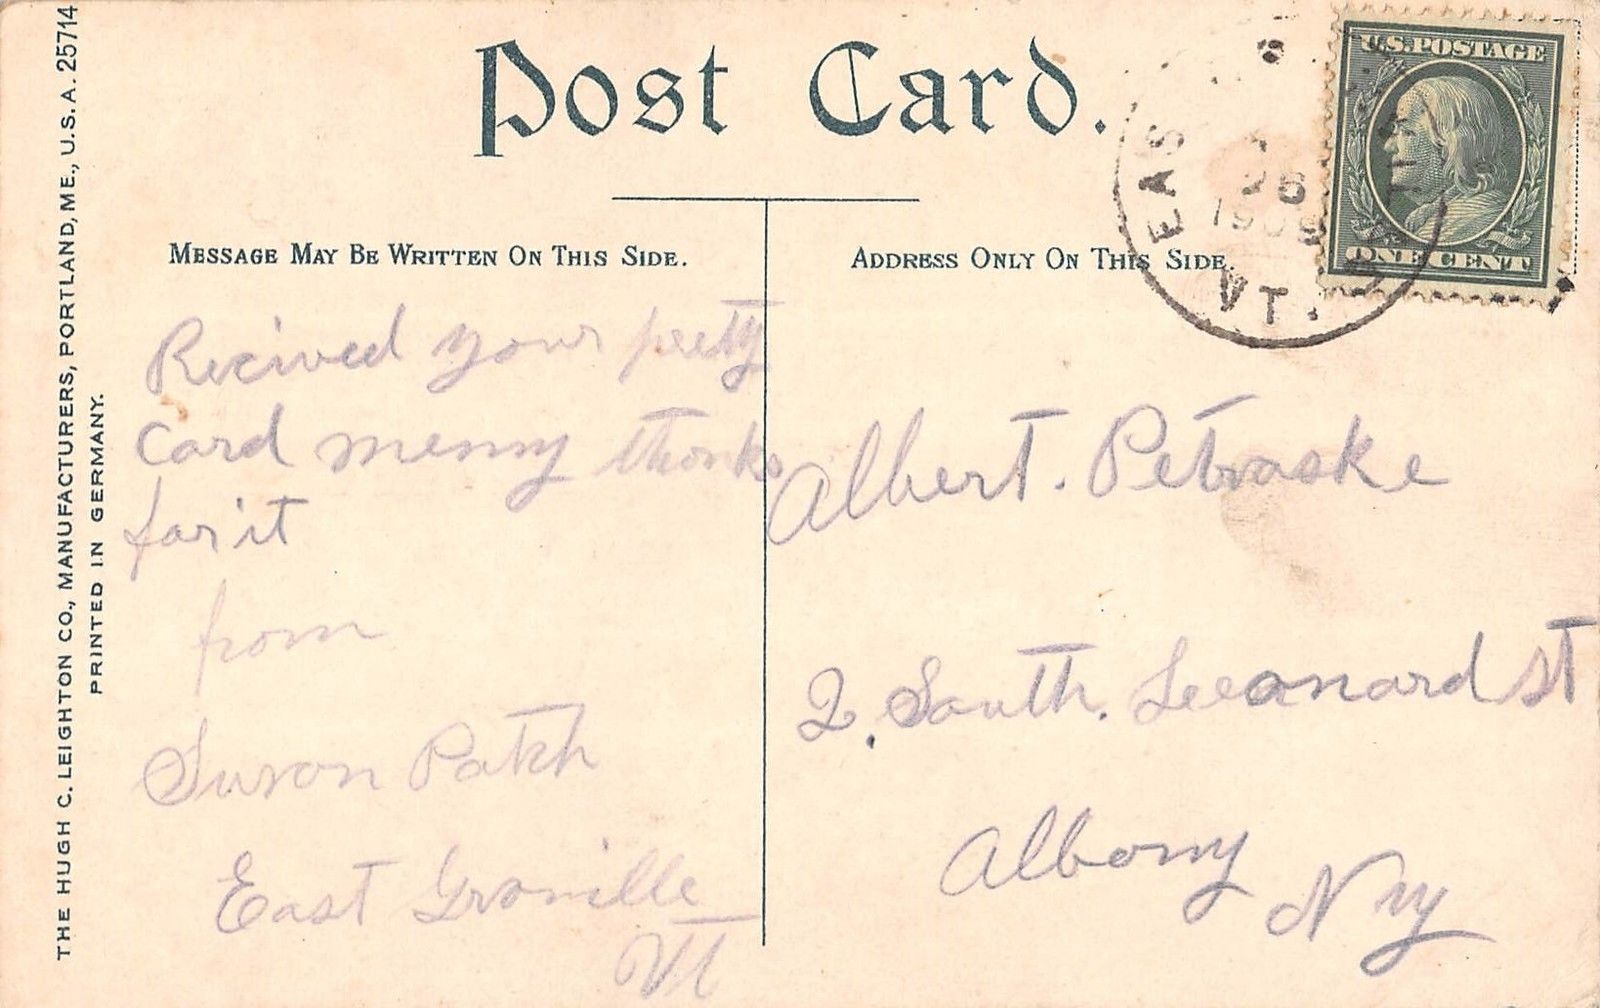 Post Card.
THE HUGH C. LEIGHTON CO., MANUFACTURERS, PORTLAND, ME., U.S.A. 25714
PRINTED IN GERMANY.
MESSAGE MAY BE WRITTEN ON THIS SIDE.
Recived your pretty
card menny thanks
for it
from
Susan Patch
East Granville
Vt
ADDRESS ONLY ON THIS SIDE.
U.S. POSTAGE
ONE CENT
EAS
VT.
26
190
Albert. Petraske
2. South. Leeonard st
Albany
Ny